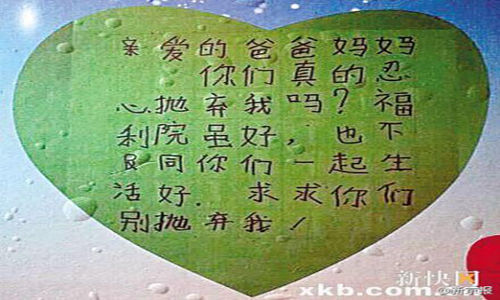 亲爱的爸爸妈妈
你们真的忍
心抛弃我吗?福
利院虽好,也不
及同你们一起生
活好.求求你们
别抛弃我!
新快网
xkb.com.cn